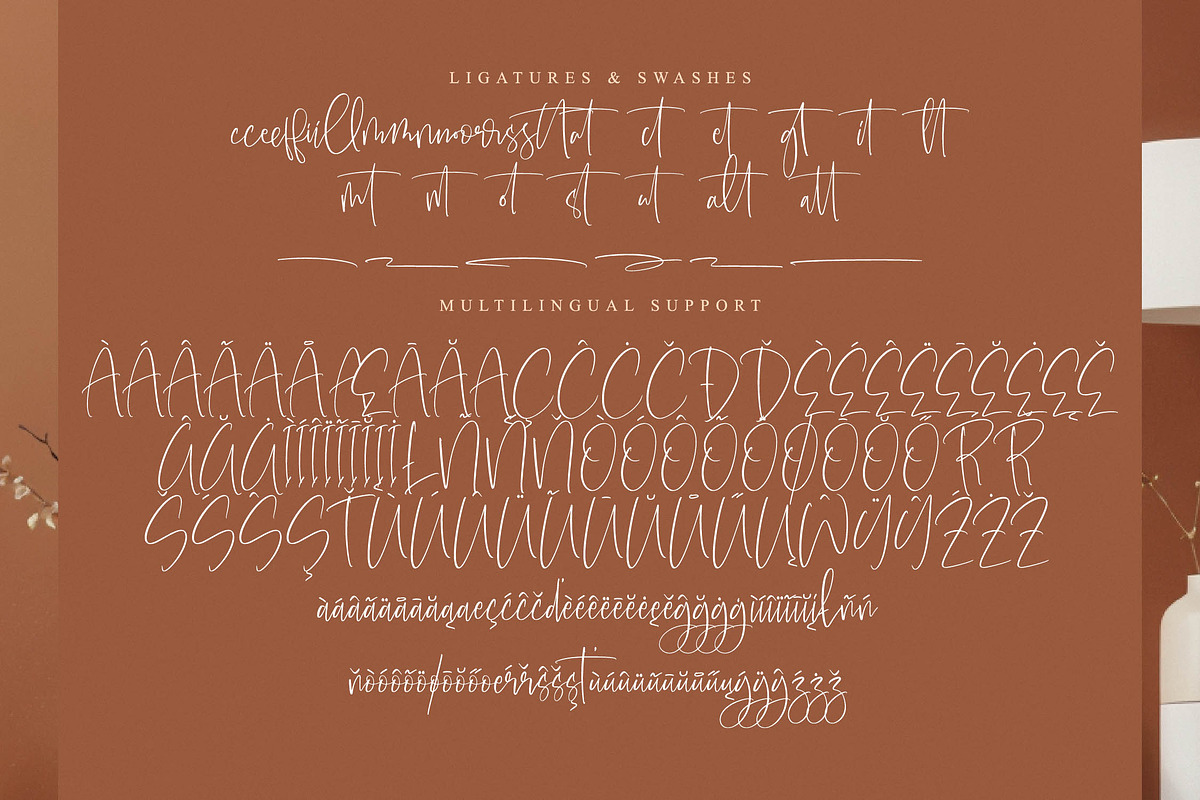 LIGATURES & SWASHES
cceeffiiillmmnnoorrsstttat ct et gt it lt
mt nt ot st ut alt att
MULTILINGUAL SUPPORT
ÀÁÂÃÄÅÆĀĂĄÇĈĊČĐĎÈÉÊËĒĔĖĘĚ
ĜĞĠÌÍÎÏĨĪĬĮİŁÑŃŇÒÓÔÕÖØŌŎŐŔŘ
ŠŚŜŞŤÙÚÛÜŨŪŬŮŰŲŴŸŶŹŻŽ
àáâãäåāăąæçćĉčďèéêëēĕėęěĝğġģìíîïĩīĭįłñń
ňòóôõöøōŏőœŕřŝšşťùúûüũūŭůűųýÿŷźżž